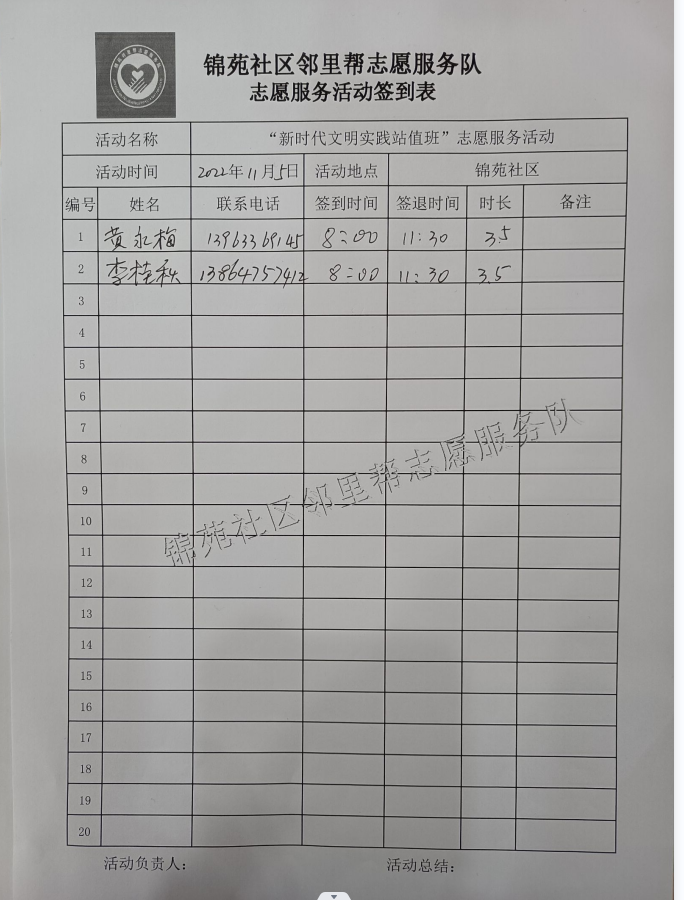 锦苑社区邻里帮志愿服务队
志愿服务活动签到表
活动名称 “新时代文明实践站值班”志愿服务活动
活动时间 2022年11月5日 活动地点 锦苑社区
编号 姓名 联系电话 签到时间 签退时间 时长 备注
1 黄永梅 13963369145 8:00 11:30 3.5
2 李桂秋 13864757412 8:00 11:30 3.5
3
4
5
6
7
8
9
10
11
12
13
14
15
16
17
18
19
20
锦苑社区邻里帮志愿服务队
活动负责人： 活动总结：